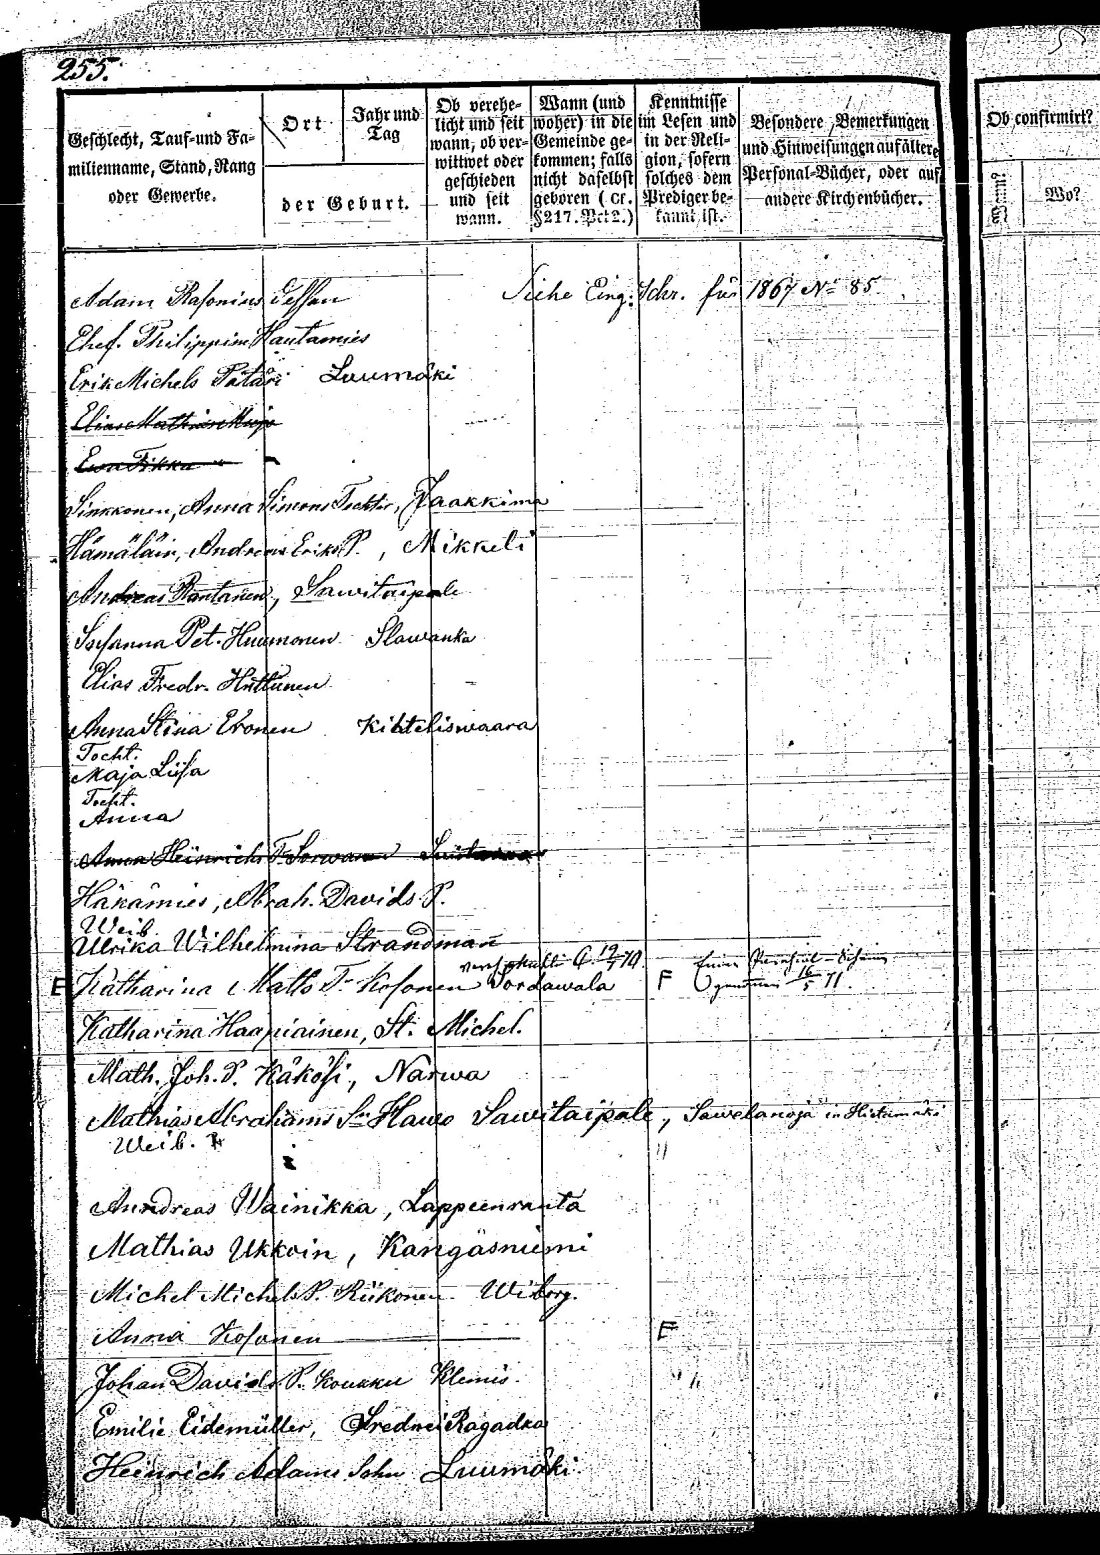 255.
Geschlecht, Tauf- und Fa-
milienname, Stand, Rang
oder Gewerbe.
Ort
Jahr und
Tag
der Geburt.
Ob verehe-
licht und seit
wann, ob ver-
wittwet oder
geschieden
und seit
wann.
Wann (und
woher) in die
Gemeinde ge-
kommen; falls
nicht daselbst
geboren (cf.
§217. Pct 2.)
Kenntnisse
im Lesen und
in der Reli-
gion, sofern
solches dem
Prediger be-
kannt ist.
Besondere Bemerkungen
und Hinweisungen auf ältere
Personal-Bücher, oder auf
andere Kirchenbücher.
Ob confirmirt?
Wann?
Wo?
Adam Rasonius Siehe Eing. Schr. für 1867 № 85
Ehef. Philippine Hautamies
Erik Michels Pätäri Luumäki
Elias Mathias
Ewa Tikka
Sinkkonen, Anna Simons Tochter, Jaakkima
Hämäläin, Andreas Eriks S., Mikkeli
Andreas Rantanen, Sawitaipale
Susanna Pet. Huumonen Slawanka
Elias Fredr. Huttunen
Anna Stina Eronen Kihteliswaara
Tocht.
Maja Liisa
Tocht.
Anna
Anna Heinrichs T. Sorwanen
Häkämies, Abrah. Davids S.
Weib
Ulrika Wilhelmina Strandman
E Katharina Matts T. Kosonen Sordawala F
16/5 71.
Katharina Haapiainen, St. Michel.
Math. Joh. S. Käkösi, Narwa
Mathias Abrahams Sn Hawo Sawitaipale, Sawolanoja in Hietamäki
Weib.
Anndreas Wainikka, Lappeenranta
Mathias Ukkoin, Kangäsniemi
Michel Michels S. Riikonen Wiborg.
Anna Kosonen F
Johan Davids S. Koukku Klemis.
Emilie Eidemüller, Srednei Ragadka
Heinrich Adams Sohn Luumäki